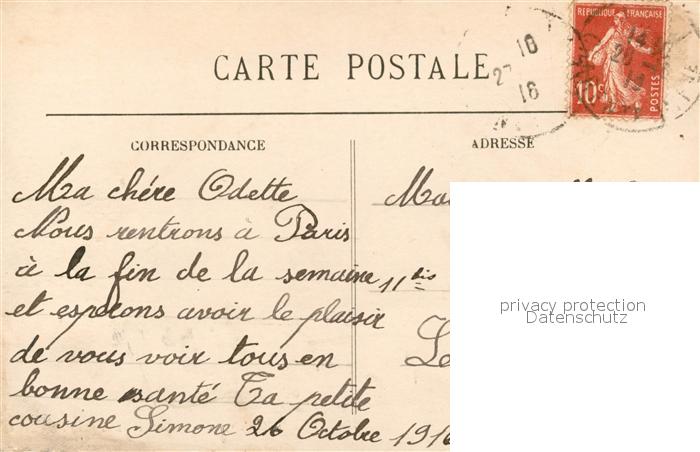 CARTE POSTALE
REPUBLIQUE FRANÇAISE
10c
POSTES
CORRESPONDANCE
Ma chére Odette
Nous rentrons à Paris
à la fin de la semaine
et esperons avoir le plaisir
de vous voir tous en
bonne santé Ta petite
cousine Simone 26 Octobre 1916
ADRESSE
11 bis
privacy protection
Datenschutz